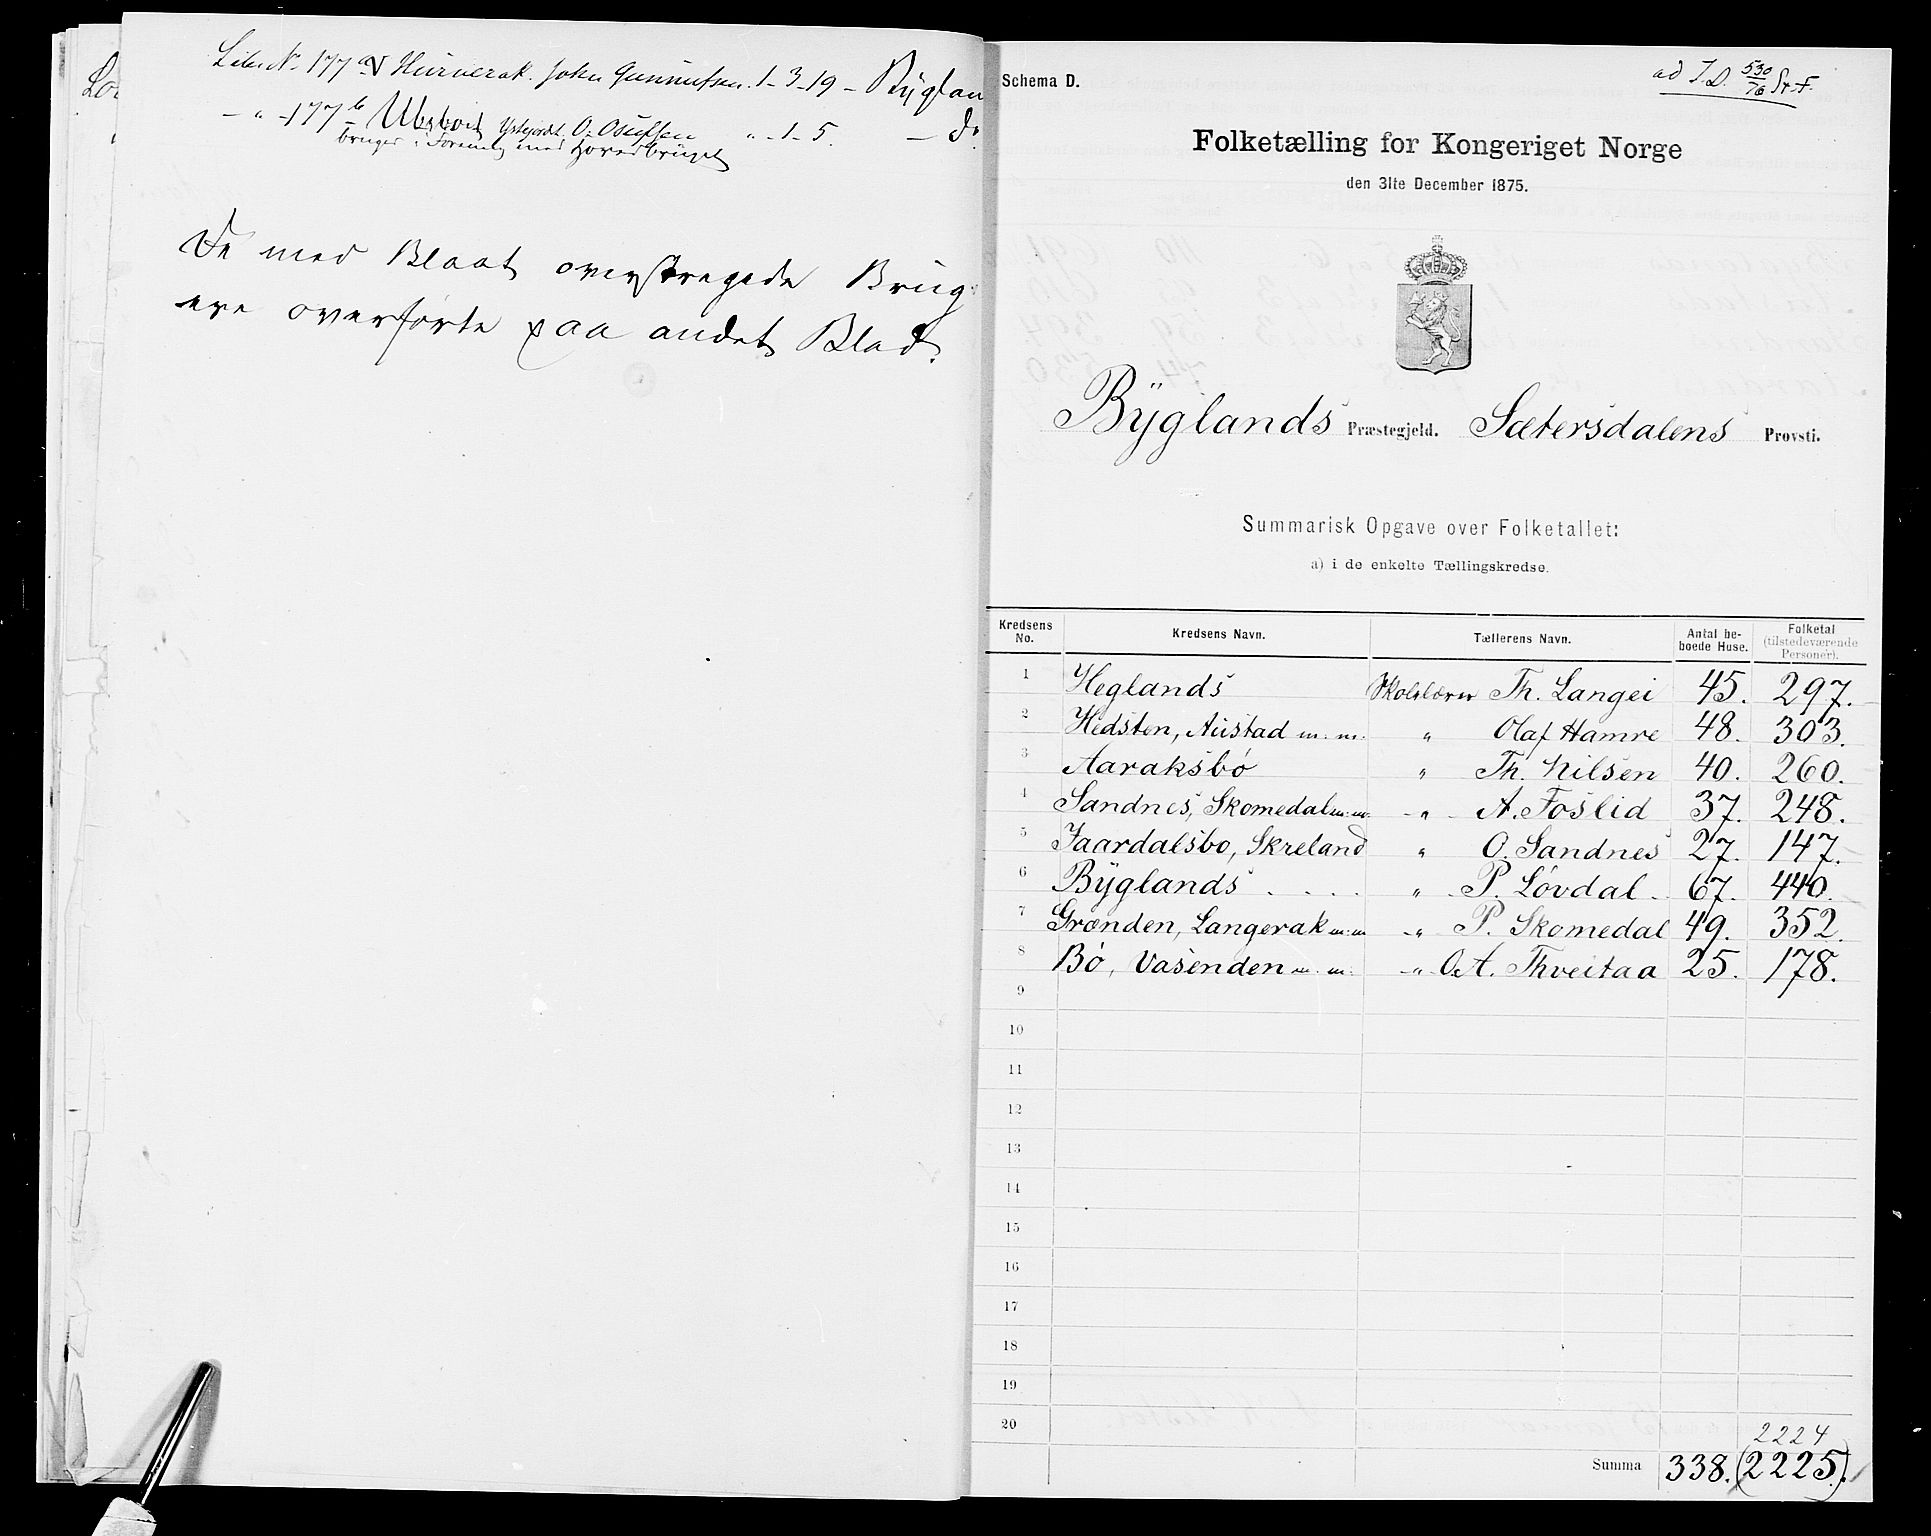 Löbe No 177 a Hurverak. John Gunnufsen. 1-3-19 - Byglan
- " - 177 b Ubsboet Ystejordt. O. Osufsen " - 1-5. - do.
bruges i Forening med Hovedbruget
De med Blaat overstregede Brug-
ere overførte paa andet Blad.
Schema D.
ad J.D. 530/76
Folketælling for Kongeriget Norge
den 31te December 1875.
Byglands Præstegjeld. Sætersdalens Provsti.
Summarisk Opgave over Folketallet:
a) i de enkelte Tællingskredse.
Kredsens No. Kredsens Navn. Tællerens Navn. Antal be-boede Huse. Folketal (tilstedeværende Personer).
1 Heglands Skolelærer Th. Langei 45. 297.
2 Hedsten, Austad m. m. " Olaf Hamre 48. 303.
3 Aaraksbø " Th. Nilsen 40. 260.
4 Sandnes, Skomedal m. m. - " - A. Foslid 37. 248.
5 Jaardalsbo, Skreland " O. Sandnes 27. 147.
6 Byglands . . . . " P. Løvdal 67. 440.
7 Grænden, Langerak m. m - " P. Skomedal 49. 352.
8 Bø, Vasenden m. m. - " O. A. Thveitaa 25. 178.
9
10
11
12
13
14
15
16
17
18
19
20
2224
Summa 338. (2225.)